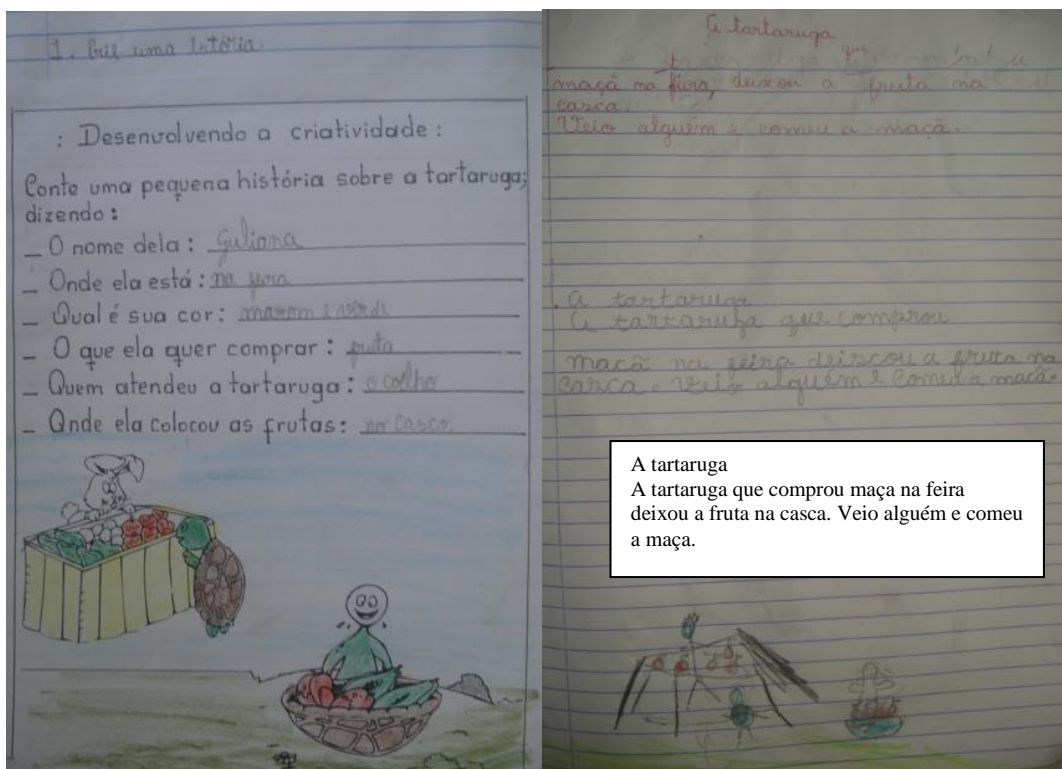 1. Crie uma istória.
: Desenvolvendo a criatividade :
Conte uma pequena história sobre a tartaruga;
dizendo :
_ O nome dela : Guliana
_ Onde ela está : na feira
_ Qual é sua cor : marom e verde
_ O que ela quer comprar : fruta
_ Quem atendeu a tartaruga : o coelho
_ Onde ela colocou as frutas: no casco.
A tartaruga
que
maçã na feira, deixou a fruta na
casca.
Veio alguém e comeu a maçã.
A tartaruga
A tartaruga que comprou
maçã na feira deixcou a frutta na
casca. veio alguém e comeu a maçã.
A tartaruga
A tartaruga que comprou maça na feira
deixou a fruta na casca. Veio alguém e comeu
a maça.